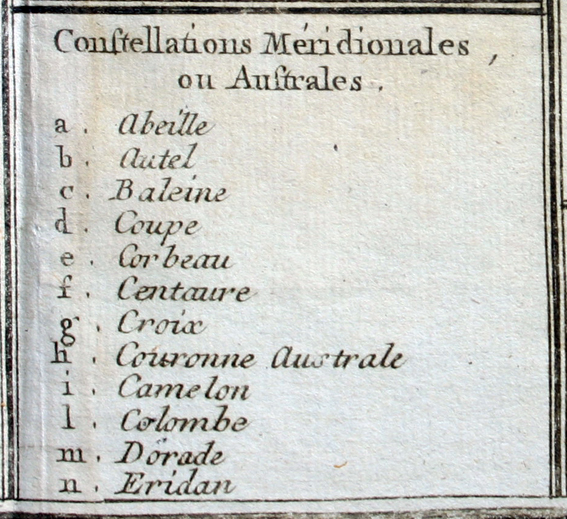 Conſtellations Méridionales,
ou Auſtrales.
a. Abeille
b. Autel
c. Baleine
d. Coupe
e. Corbeau
f. Centaure
g. Croix
h. Couronne Australe
i. Camelon
l. Colombe
m. Dorade
n. Eridan